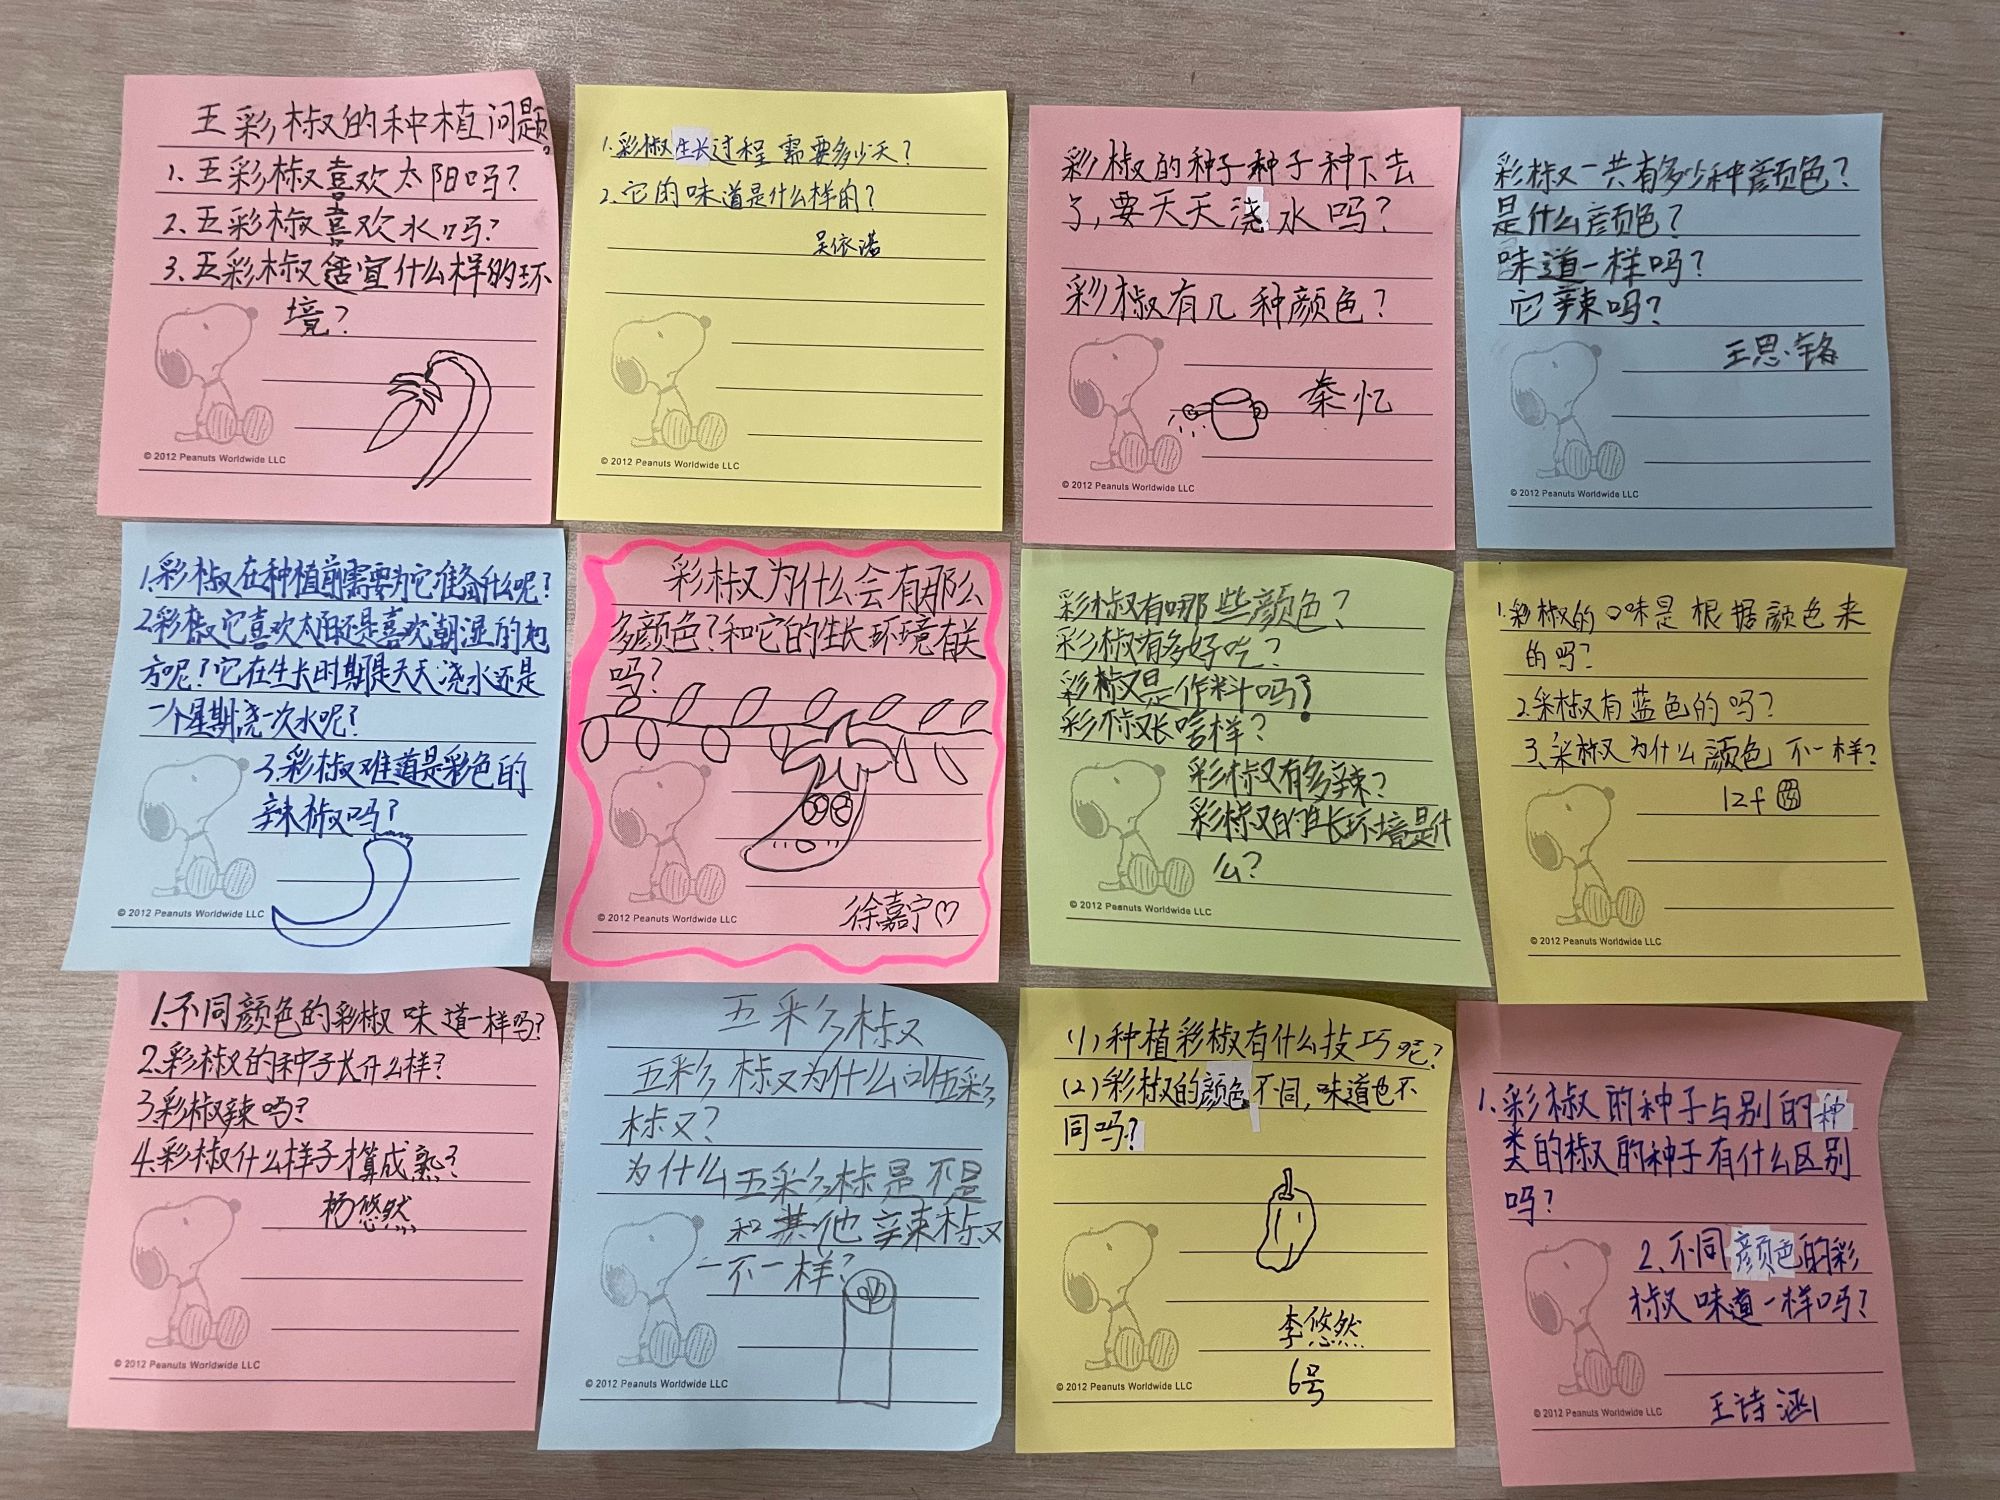 五彩椒的种植问题。
1.五彩椒喜欢太阳吗?
2.五彩椒喜欢水吗?
3.五彩椒适宜什么样的环
境?
© 2012 Peanuts Worldwide LLC
1.彩椒生长过程需要多少天?
2.它的味道是什么样的?
吴依诺
© 2012 Peanuts Worldwide LLC
彩椒的种子种子种下去
了,要天天浇水吗?
彩椒有几种颜色?
秦忆
© 2012 Peanuts Worldwide LLC
彩椒一共有多少种颜色?
是什么颜色?
味道一样吗?
它辣吗?
王思
© 2012 Peanuts Worldwide LLC
1.彩椒在种植前需要为它准备什么呢?
2.彩椒它喜欢太阳还是喜欢潮湿的地
方呢!它在生长时期是天天浇水还是
一个星期浇一次水呢?
3.彩椒难道是彩色的
辣椒吗?
© 2012 Peanuts Worldwide LLC
彩椒为什么会有那么
多颜色?和它的生长环境有关
吗?
徐嘉宁♡
© 2012 Peanuts Worldwide LLC
彩椒有哪些颜色?
彩椒有多好吃?
彩椒是作料吗?
彩椒长啥样?
彩椒有多辣?
彩椒的生长环境是什
么?
© 2012 Peanuts Worldwide LLC
1.彩椒的口味是根据颜色来
的吗?
2.采椒有蓝色的吗?
3.采椒为什么颜色不一样?
© 2012 Peanuts Worldwide LLC
1.不同颜色的彩椒味道一样吗?
2.彩椒的种子长什么样?
3.彩椒辣吗?
4.彩椒什么样子才算成熟?
杨悠然
© 2012 Peanuts Worldwide LLC
五彩椒
五彩椒为什么叫伍彩
椒?
为什么五彩椒是不是
和其他辣椒
一不一样?
© 2012 Peanuts Worldwide LLC
(1)种植彩椒有什么技巧呢?
(2)彩椒的颜色不同,味道也不
同吗?
李悠然
6号
© 2012 Peanuts Worldwide LLC
1.彩椒的种子与别的种
类的椒的种子有什么区别
吗?
2.不同颜色的彩
椒味道一样吗?
王诗涵
© 2012 Peanuts Worldwide LLC